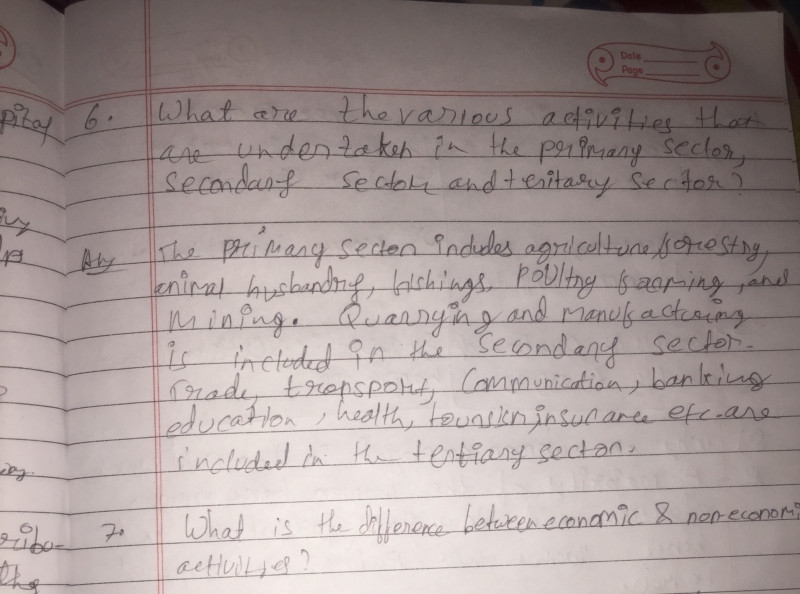 Date
Page
6. What are the various activities that
are undertaken in the primary sector,
secondary sector and teritary sector?
Ans The primary sector includes agriculture, forestry,
animal husbandry, fishings, poultry farming, and
mining. Quarrying and manufacturing
is included in the secondary sector.
Trade, transport, communication, banking
education, health, tourism, insurance etc. are
included in the tertiary sector.
7. What is the difference between economic & non-economi
activities?